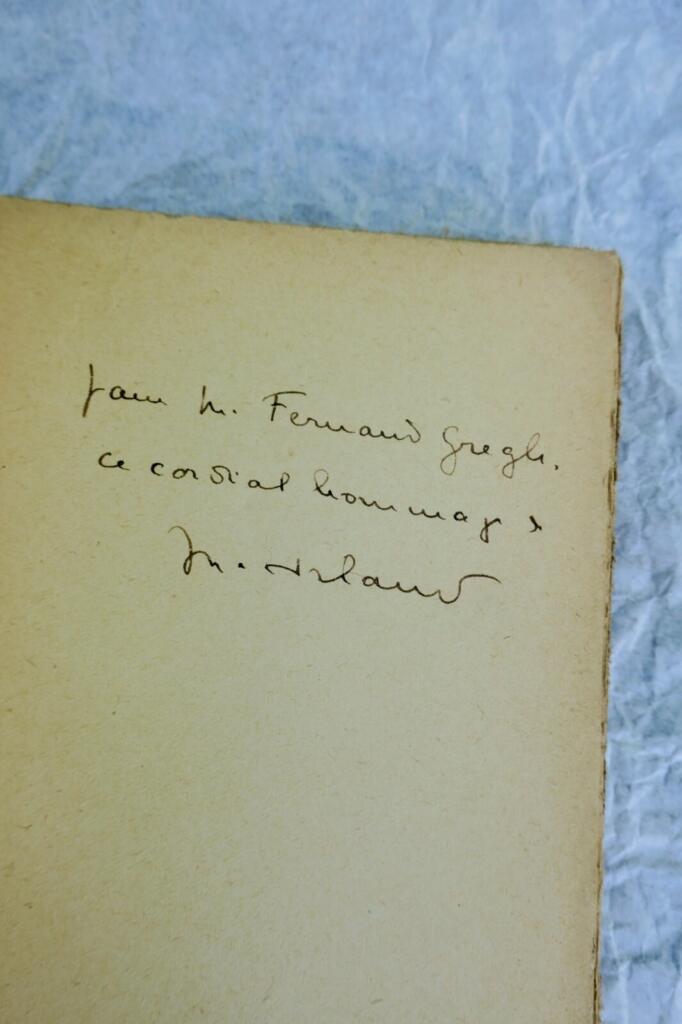 pour M. Fernand Gregh,
ce cordial hommage de
M. Arland